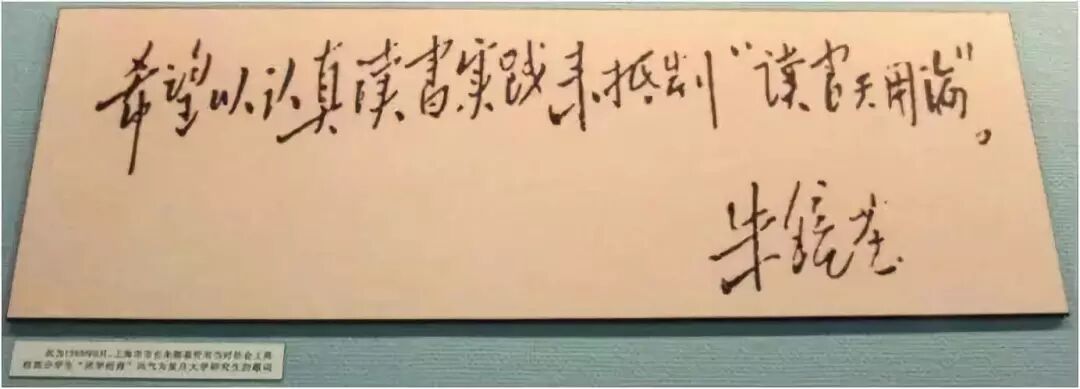 希望以认真读书实践来抵制“读书无用论”。
朱镕基
此为1989年8月,上海市市长朱镕基针对当时社会上高
校部分学生“厌学经商”风气为复旦大学研究生的题词